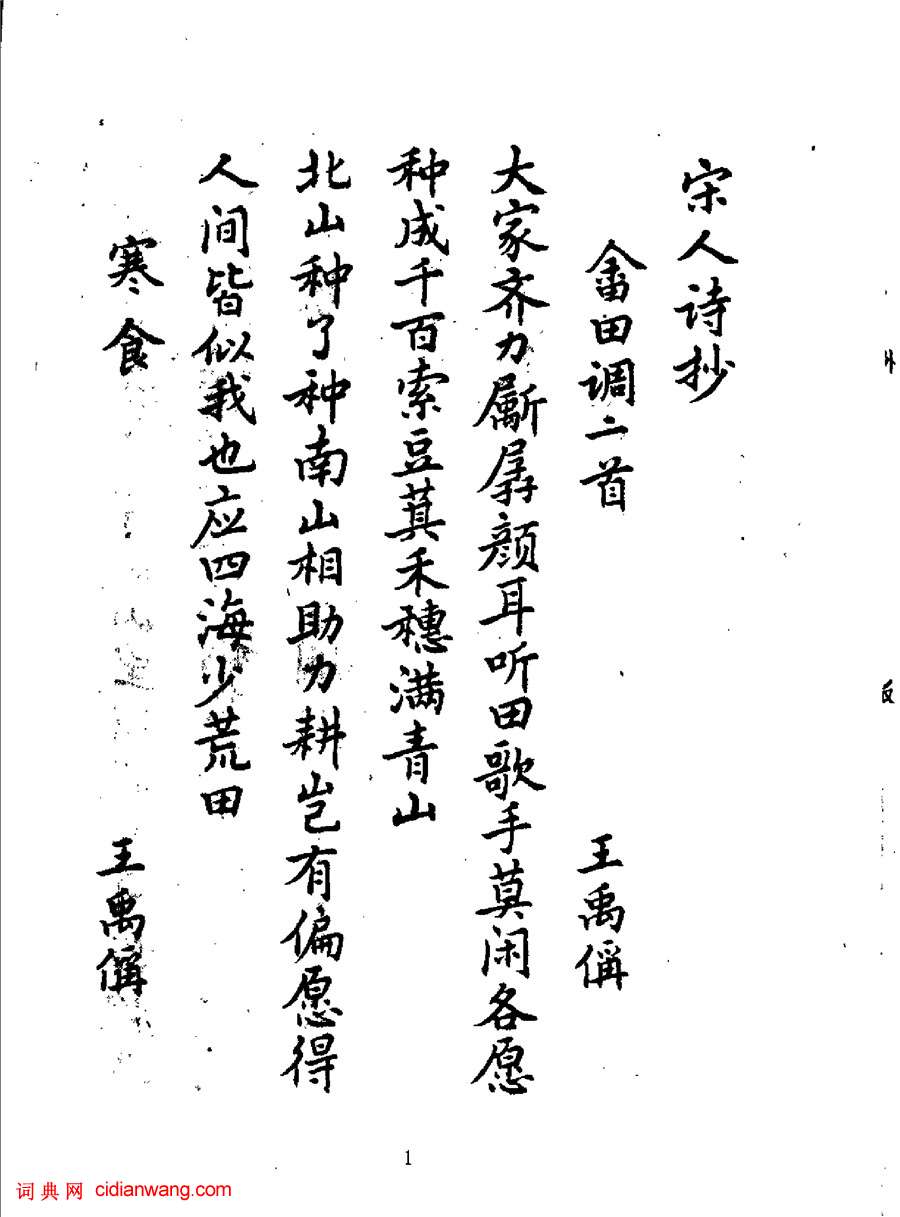 宋人诗抄
畲田调二首 王禹偁
大家齐力斸孱颜耳听田歌手莫闲各愿
种成千百索豆萁禾穗满青山
北山种了种南山相助力耕岂有偏愿得
人间皆似我也应四海少荒田
寒食 王禹偁
1
词典网 cidianwang.com